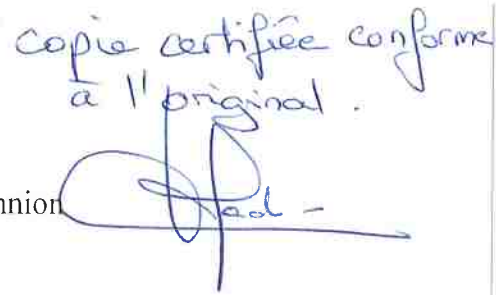 copie certifiée conforme
à l'original.
nnion